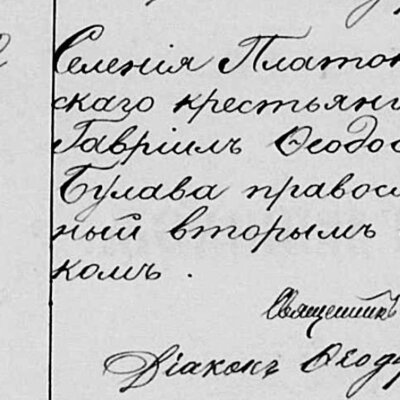 Селенія Платон
скаго крестьяни
Гавріилъ Ѳеодос
Булава правосл
ный вторымъ
комъ.
Священникъ
Діаконъ Ѳеодр